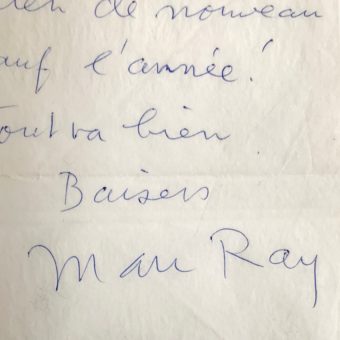 rien de nouveau
sauf l'année!
Tout va bien
Baisers
Man Ray